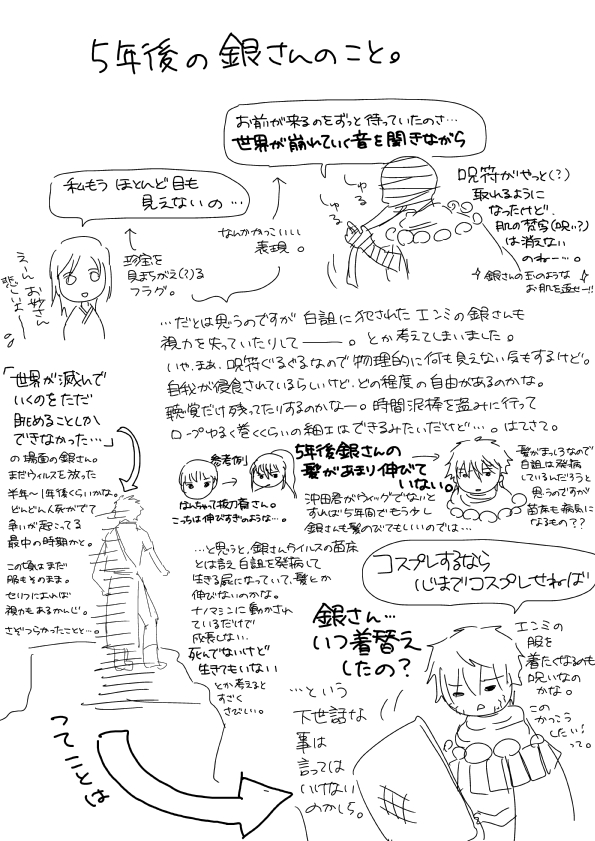 5年後の銀さんのこと。
お前が来るのをずっと待っていたのさ…
世界が崩れていく音を聞きながら
私もう ほとんど目も
見えないの…
しゅる
しゅる
呪符がやっと(?)
取れるように
なったけど、
肌の梵字(呪い?)
は消えない
のねー…。
銀さんの玉のような
お肌を返せー!!
なんかかっこいい
表現。
珍宝を
見まちがえ(?)る
フラグ。
えーん
お妙さん
悲しいよー
…だとは思うのですが 白詛に犯された エンミの銀さんも
視力を失っていたりして―――。とか考えてしまいました。
いや、まぁ、呪符ぐるぐるなので物理的に何も見えない気もするけど。
自我が侵食されているらしいけど、どの程度の自由があるのかな。
聴覚だけ残ってたりするのかなー。時間泥棒を盗みに行って
ロープゆるく巻くくらいの細工はできるみたいだけど…。はてさて。
「世界が滅んで
いくのをただ
眺めることしか
できなかった…」
の場面の銀さん。
まだウィルスを放った
半年~1年後くらいかな。
どんどん人死がでて
争いが起こってる
最中の時期かと。
この頃はまだ
服もそのまま。
セリフによれば
視力もあるかんじ。
さぞつらかったことと…。
参考例
はんちゃって抜刀斎さん。
こっちは伸びすぎのような…。
5年後銀さんの
髪があまり伸びて
いない。
沖田君がウィッグでないと
すれば5年間でもう少し
銀さんも髪のびてもいいのでは…
髪がまっしろなので
白詛は発病
しているんだろうと
思うのですが
苗床も病気に
なるもの??
…と思うと、銀さんウイルスの苗床
とは言え白詛を発病して
生きる屍になっていて、髪とか
伸びないのかな。
ナノマシンに動かされ
ているだけで
成長しない、
死んでないけど
生きてもいない
とか考えると
すごく
さびしい。
コスプレするなら
心までコスプレせねば
銀さん…
いつ着替え
したの?
…という
下世話な
事は
言っては
いけない
のかしら。
エンミの
服を
着たくなるのも
呪いなの
かな。
この
かっこう
したい!
って。
ってことな